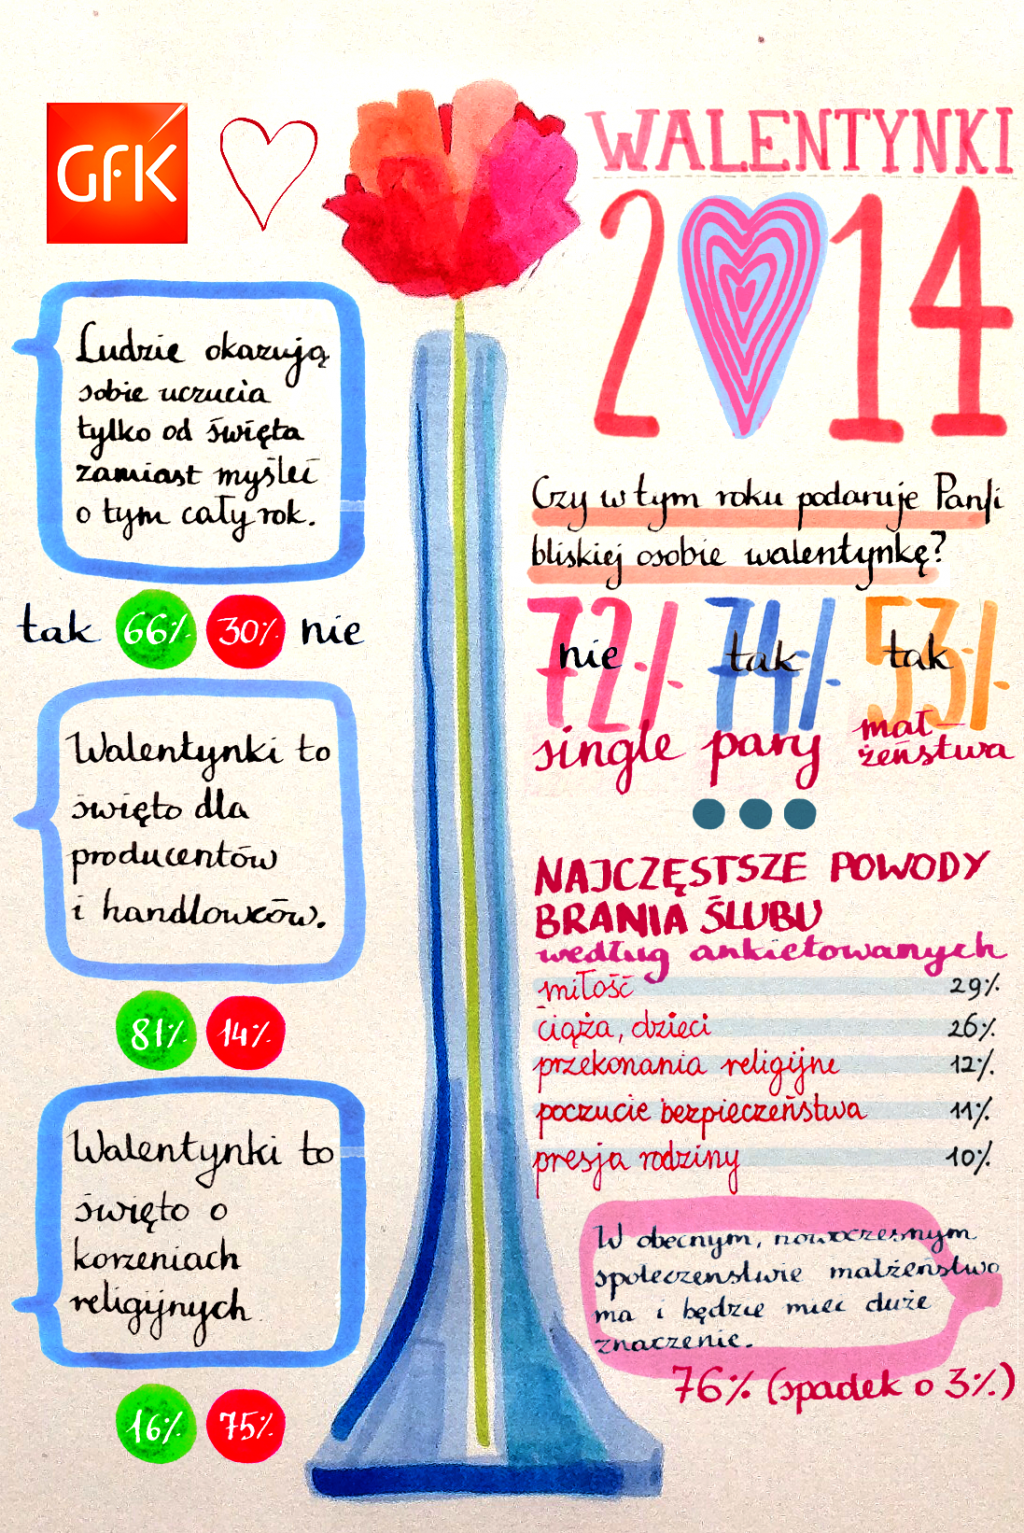 GFK
WALENTYNKI
2014
Ludzie okazują
sobie uczucia
tylko od święta
zamiast myśleć
o tym cały rok.
tak 66% 30% nie
Walentynki to
święto dla
producentów
i handlowców.
81% 14%
Walentynki to
święto o
korzeniach
religijnych
16% 75%
Czy w tym roku podaruje Pan/i
bliskiej osobie walentynkę?
72% 74% 53%
nie tak tak
single pary mał-
żeństwa
NAJCZĘSTSZE POWODY
BRANIA ŚLUBU
według ankietowanych
miłość 29%
ciąża, dzieci 26%
przekonania religijne 12%
poczucie bezpieczeństwa 11%
presja rodziny 10%
W obecnym, nowoczesnym
społeczenstwie małżeństwo
ma i będzie mieć duże
znaczenie.
76% (spadek o 3%)